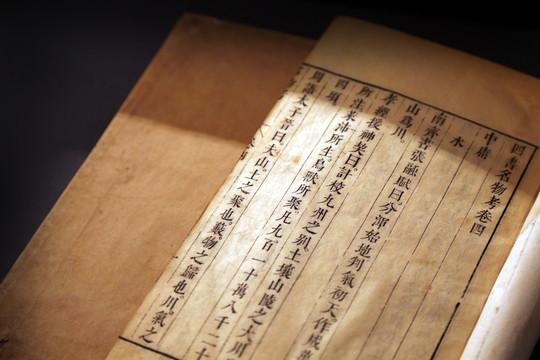 四書名物考卷四
中庸
水
南齊書張融賦曰分渾始地判氣初天作成萬
山為川
孝經援神契曰計校九州之別土壤山陵之大川
所生萊沛所生鳥獸所聚凡九百一十萬八千二十
四頃
周語太子晉曰夫山土之聚也藪物之歸也川氣之